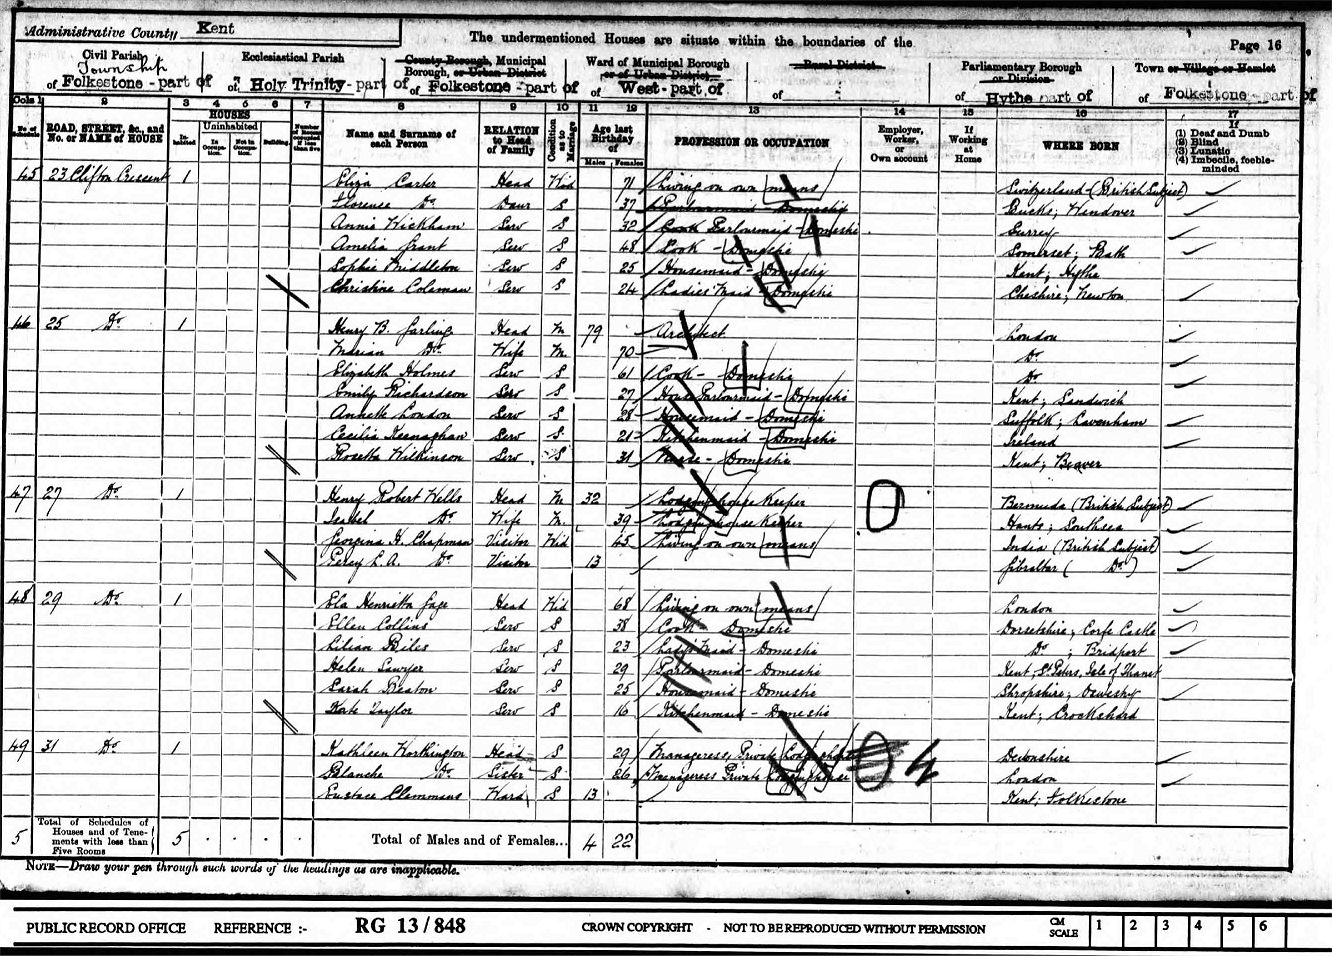 Administrative County Kent
The undermentioned Houses are situate within the boundaries of the
Page 16
Civil Parish Township of Folkestone - part of
Ecclesiastical Parish of Holy Trinity - part of
County Borough, Municipal Borough, or Urban District of Folkestone - part of
Ward of Municipal Borough or of Urban District of West - part of
Rural District of
Parliamentary Borough or Division of Hythe part of
Town or Village or Hamlet of Folkestone part of
Cols 1 2 3 4 5 6 7 8 9 10 11 12 13 14 15 16 17
No. of Schedule
ROAD, STREET, &c., and No. or NAME of HOUSE
HOUSES
Inhabited
Uninhabited
In Occupation.
Not in Occupation.
Building.
Name and Surname of each Person
RELATION to Head of Family
Condition as to Marriage
Age last Birthday of
Males Females
PROFESSION OR OCCUPATION
Employer, Worker, or Own account
If Working at Home
WHERE BORN
If (1) Deaf and Dumb (2) Blind (3) Lunatic (4) Imbecile, feeble-minded
45 23 Clifton Crescent 1 Eliza Carter Head Wid 71 Living on own means Switzerland (British Subject)
Florence Do Daur S 37 Parlourmaid - Domestic Bucks; Wendover
Annie Wickham Serv S 32 Cook Parlourmaid - Domestic Surrey
Amelia Grant Serv S 48 Cook - Domestic Somerset; Bath
Sophia Middleton Serv S 25 Housemaid - Domestic Kent; Hythe
Christine Coleman Serv S 24 Ladies' Maid - Domestic Cheshire; Newton
46 25 Do 1 Henry B. Garling Head M 79 Architect London
Marian Do Wife M. 70 Do
Elizabeth Holmes Serv S 61 Cook - Domestic Do
Emily Richardson Serv S 27 House Parlourmaid - Domestic Kent; Sandwich
Annett London Serv S 28 Housemaid - Domestic Suffolk; Lavenham
Cecilia Kernaghan Serv S 21 Kitchenmaid - Domestic Ireland
Rosetta Wilkinson Serv S 31 Nurse - Domestic Kent; Beaver
47 27 Do 1 Henry Robert Wells Head M 32 Lodging house Keeper Bermuda (British Subject)
Isabel Do Wife M. 39 Lodging house Keeper Hants; Southsea
Georgina H. Chapman Visitor Wid 45 Living on own means India (British Subject)
Percy L. A. Do Visitor 13 Gibraltar ( Do )
48 29 Do 1 Ela Henrietta Gage Head Wid 68 Living on own means London
Ellen Collins Serv S 38 Cook - Domestic Dorsetshire; Corfe Castle
Lilian Biles Serv S 23 Lady's Maid - Domestic Do ; Bridport
Helen Sawyer Serv S 29 Parlourmaid - Domestic Kent; St. Peters, Isle of Thanet
Sarah Beaton Serv S 25 Housemaid - Domestic Shropshire; Oswestry
Kate Taylor Serv S 16 Kitchenmaid - Domestic Kent;
49 31 Do 1 Kathleen Worthington Head S 29 Manageress, Private Lodghouse Devonshire
Blanche Do Sister S 26 Manageress Private Lodginghouse London
Eustace Clemmans Ward S 13 Kent; Folkestone
5 Total of Schedules of Houses and of Tenements with less than Five Rooms 5 Total of Males and of Females... 4 22
NOTE—Draw your pen through such words of the headings as are inapplicable.
PUBLIC RECORD OFFICE REFERENCE :- RG 13 / 848 CROWN COPYRIGHT - NOT TO BE REPRODUCED WITHOUT PERMISSION CM SCALE 1 2 3 4 5 6